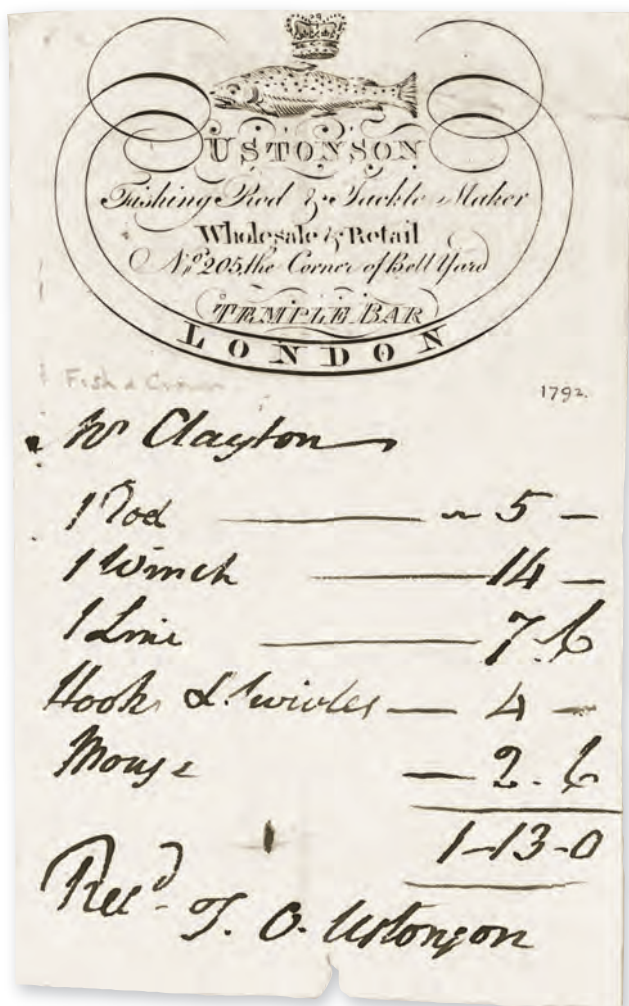 USTONSON
Fishing Rod & Tackle Maker
Wholesale & Retail
No. 205, the Corner of Bell Yard
TEMPLE BAR
LONDON
Fish & Crown
1792.
Mr Clayton
1 Rod — 5 —
1 Winch — 14 —
1 Line — 7.6
Hooks & Swivles — 4 —
Mouse — 2.6
1-13-0
Recd. T. O. Ustonson